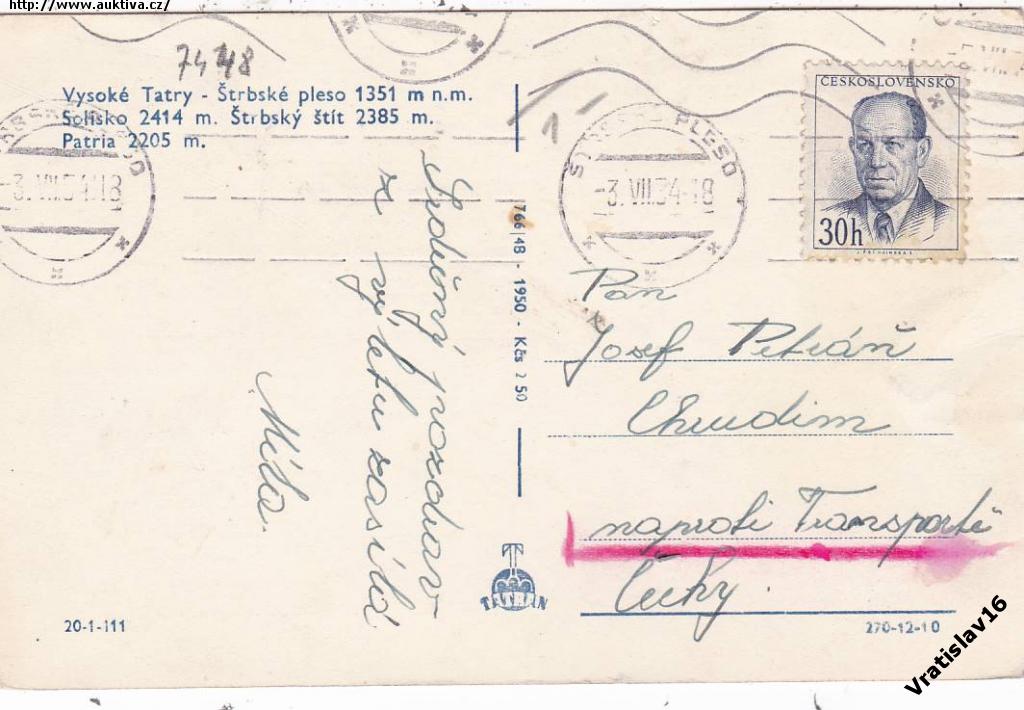 http://www.auktiva.cz/
7448
Vysoké Tatry - Štrbské pleso 1351 m n.m.
Solisko 2414 m. Štrbský štít 2385 m.
Patria 2205 m.
PLESO
-3.VII.54-18
Srdečný pozdrav
z výletu zasílá
Míla.
766/48 - 1950 - Kčs 2 50
TATRAN
20-1-111
1
ŠTRBSKÉ PLESO
-3.VII.54-18
ČESKOSLOVENSKO
30h
Pan
Josef Petráň
Chrudim
naproti Transportě
Čechy.
270-12-10
Vratislav16